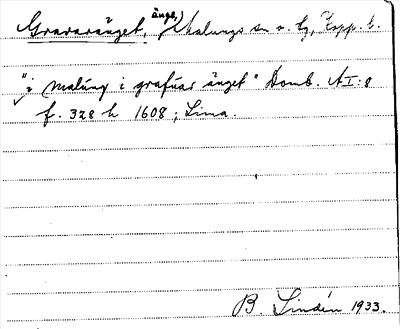 Gravaränget, änge, Malungs sn o. tg, Kopp. l.
"i malung i grafuar änget" Domb. AI:8
f. 328 h 1608; Lima.
B. Lindén 1933.